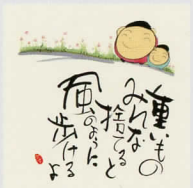 重いもの
みんな
捨てると
風のように
歩けるよ